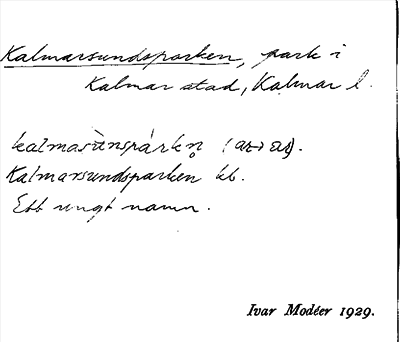 Kalmarsundsparken, park i
Kalmar stad, Kalmar l.
kalmarsùnspárkn̥ (ar> as).
Kalmarsundsparken kb.
Ett ungt namn.
Ivar Modéer 1929.